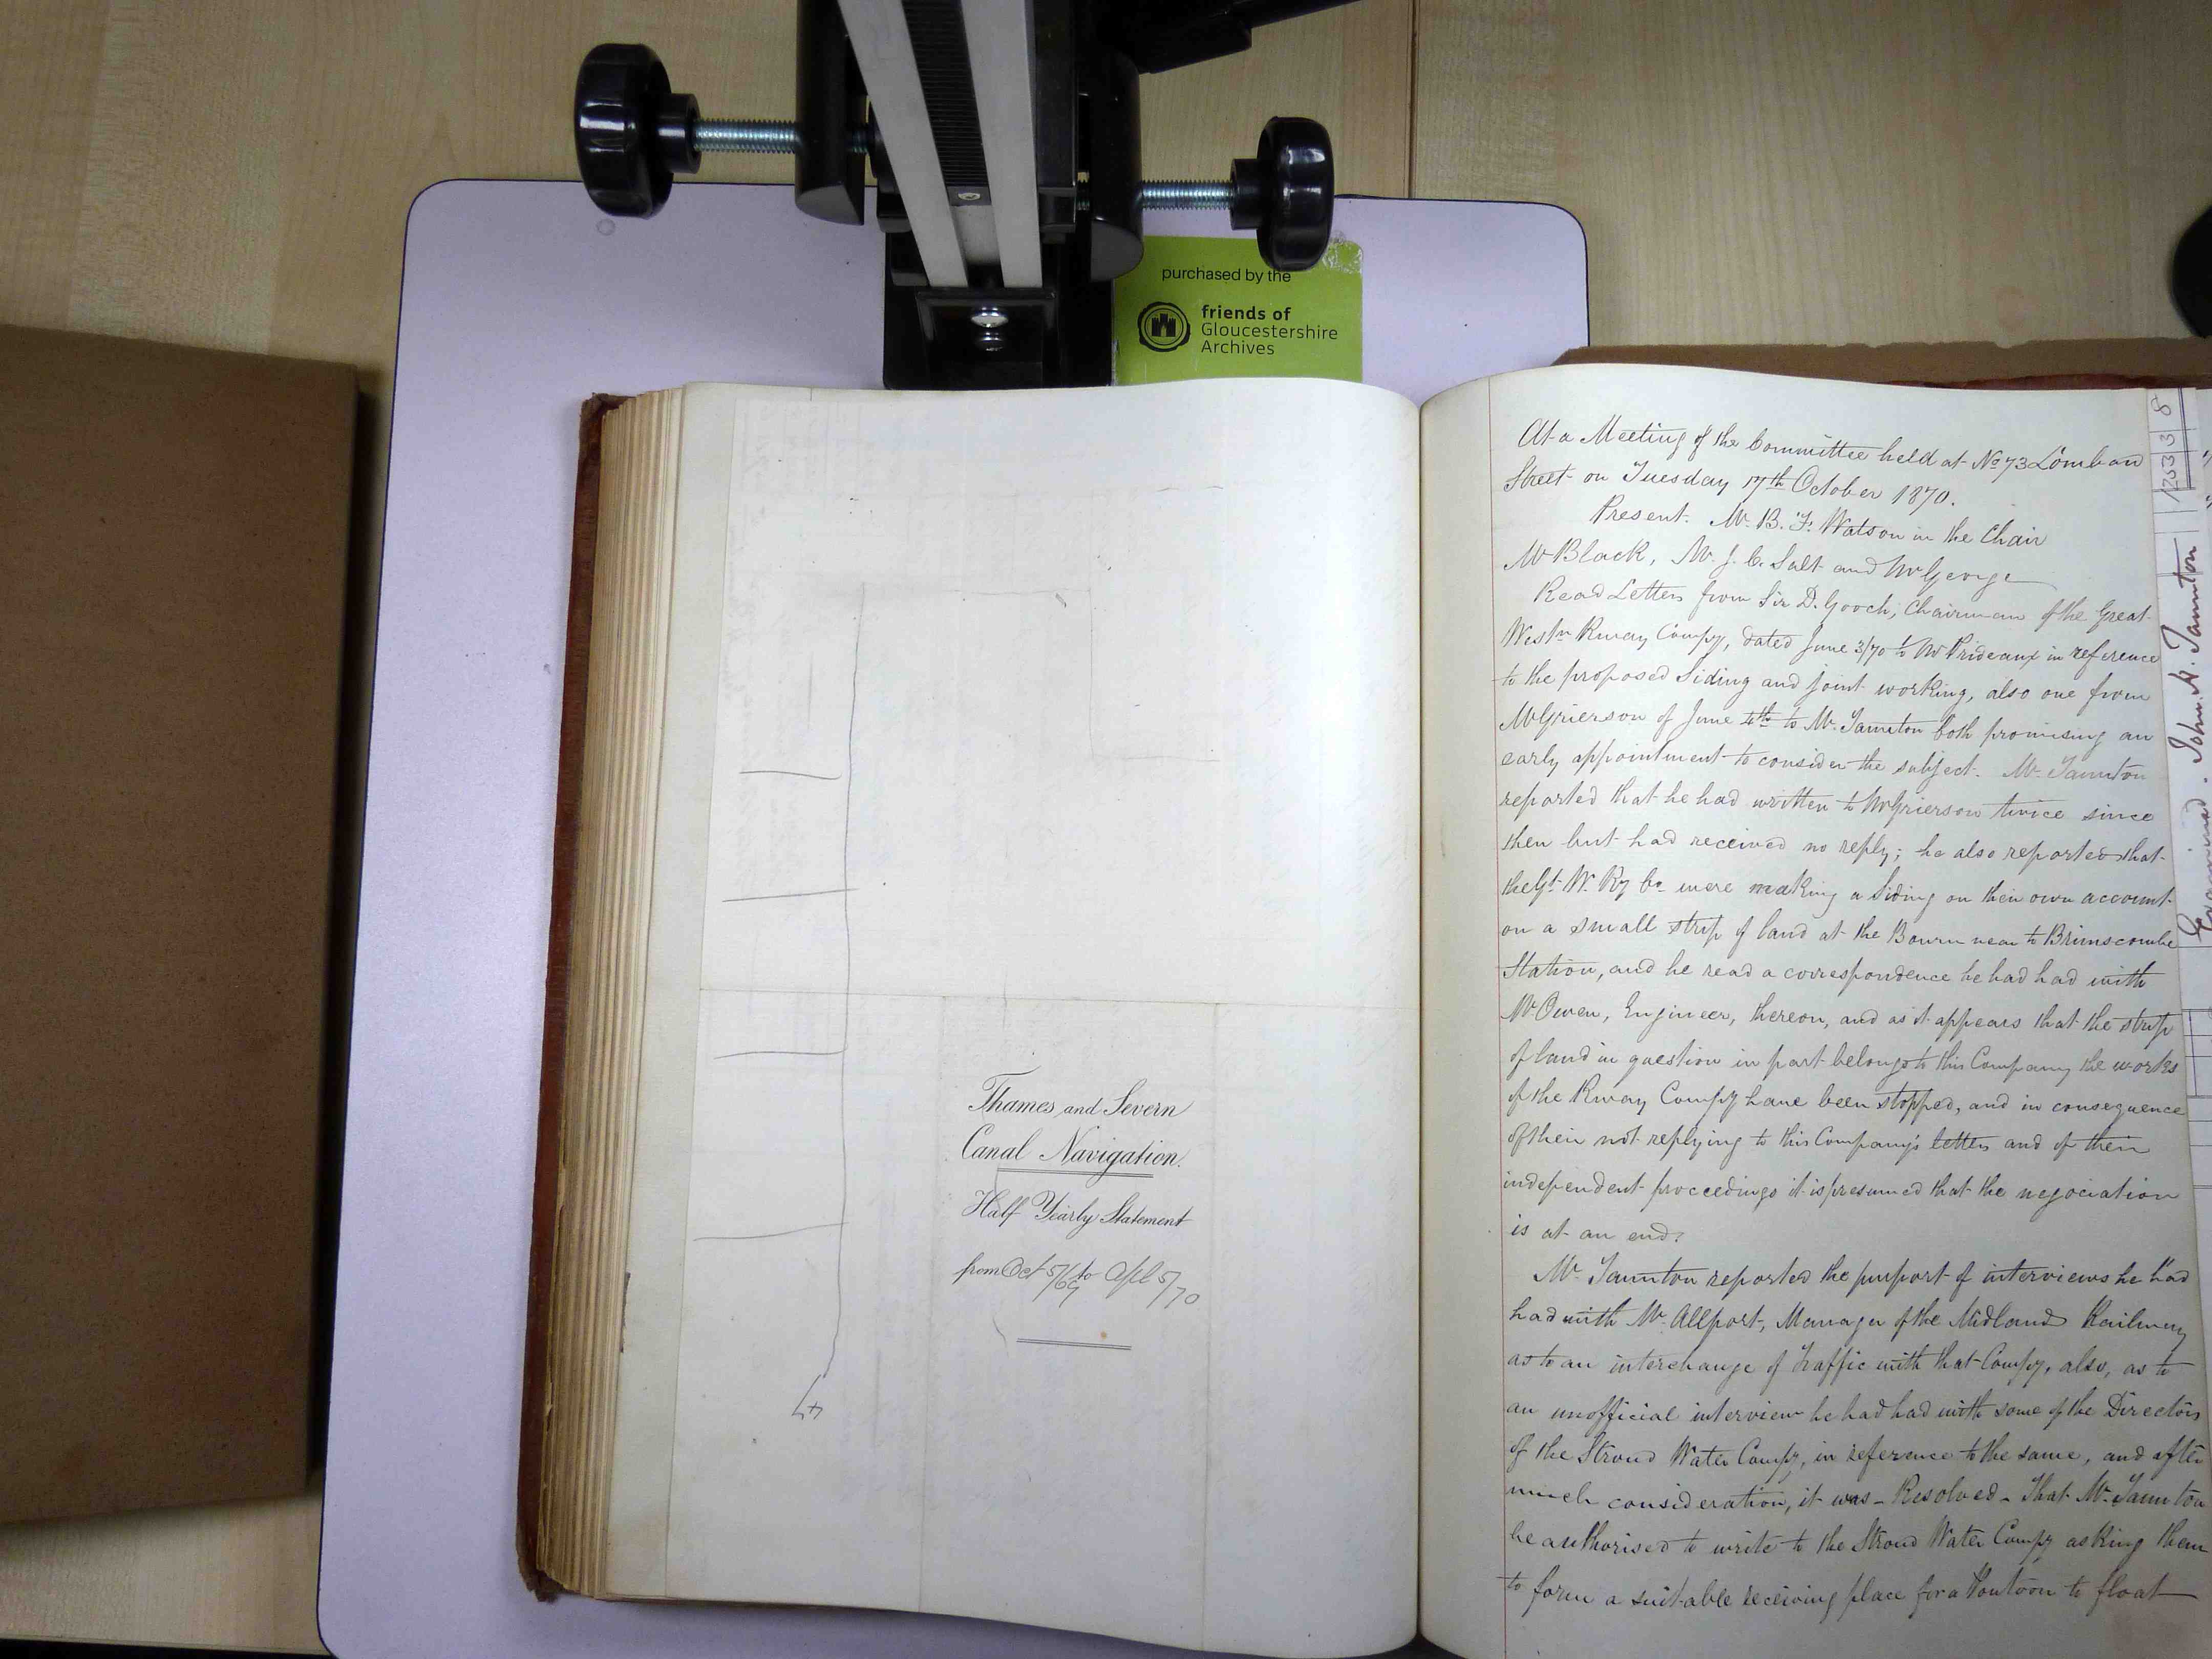 purchased by the
friends of
Gloucestershire
Archives
Thames and Severn
Canal Navigation.
Half Yearly Statement
from Oct 5/69 to Apl 5/70
At a Meeting of the Committee held at No 73 Lombard
Street on Tuesday 17th October 1870.
Present. Mr. B. F. Watson in the Chair
Mr Black, Mr. J. C. Salt and Mr George
Read Letters from Sir D. Gooch, Chairman of the Great
Westn Rway Compy, dated June 3/70 to Mr Prideaux in reference
to the proposed Siding and joint working, also one from
Mr Grierson of June to Mr. Taunton both promising an
early appointment to consider the subject. Mr. Taunton
reported that he had written to Mr Grierson twice since
then but had received no reply; he also reported that
the Gt. W. Ry Co. were making a Siding on their own account
on a small strip of land at the Bourn near to Brimscombe
Station, and he read a correspondence he had had with
Mr. Owen, Engineer, thereon, and as it appears that the strip
of land in question in part belongs to this Company the works
of the Rway Compy have been stopped, and in consequence
of their not replying to this Company's letters and of their
independent proceedings it is presumed that the negociation
is at an end.
Mr. Taunton reported the purport of interviews he had
had with Mr. Allport, Manager of the Midland Railway
as to an interchange of traffic with that Compy, also, as to
an unofficial interview he had had with some of the Directors
of the Stroud Water Compy, in reference to the same, and after
much consideration, it was - Resolved - That Mr. Taunton
be authorised to write to the Stroud Water Compy asking them
to form a suitable receiving place for a Pontoon to float
12533 8
Examined. John. H. Taunton